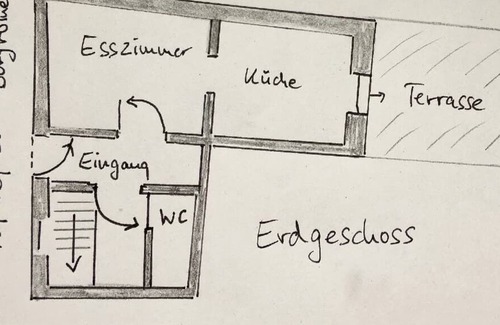 Esszimmer
Küche
Terrasse
Eingang
WC
Erdgeschoss